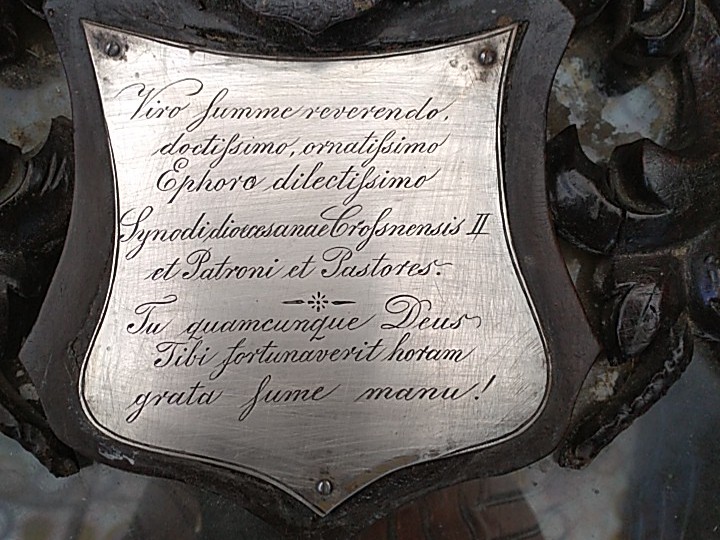 Viro ſumme reverendo,
doctiſsimo, ornatiſsimo
Ephoro dilectiſsimo
Synodi dioecesanae Croſsnensis II
et Patroni et Pastores.
Tu quamcunque Deus
Tibi fortunaverit horam
grata ſume manu!